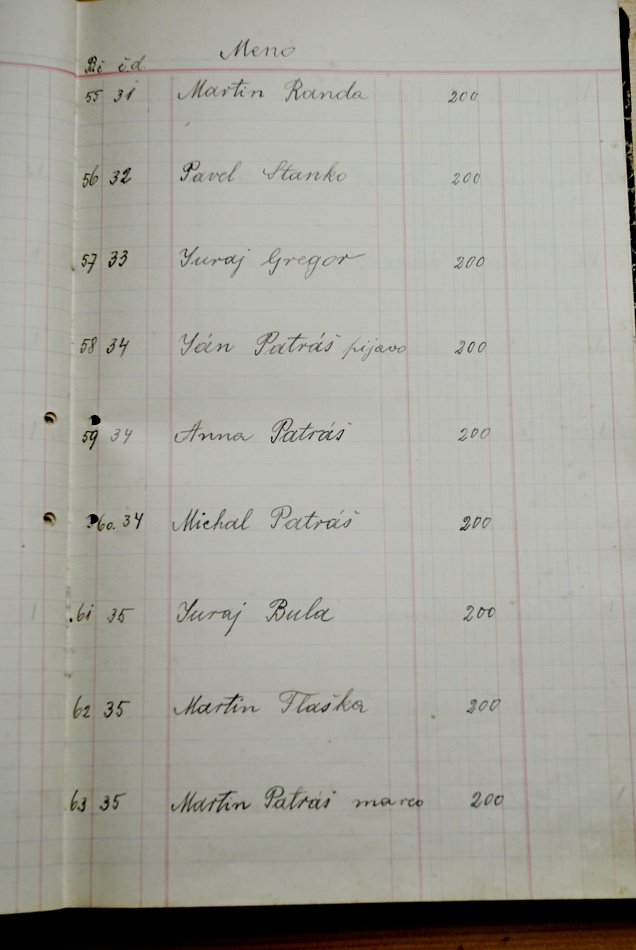 Meno
č.d.
55 31 Martin Randa 200
56 32 Pavel Stanko 200
57 33 Juraj Gregor 200
58 34 Ján Patráš pijavo 200
59 34 Anna Patráš 200
60. 34 Michal Patráš 200
61 35 Juraj Bula 200
62 35 Martin Flaška 200
63 35 Martin Patráš marco 200